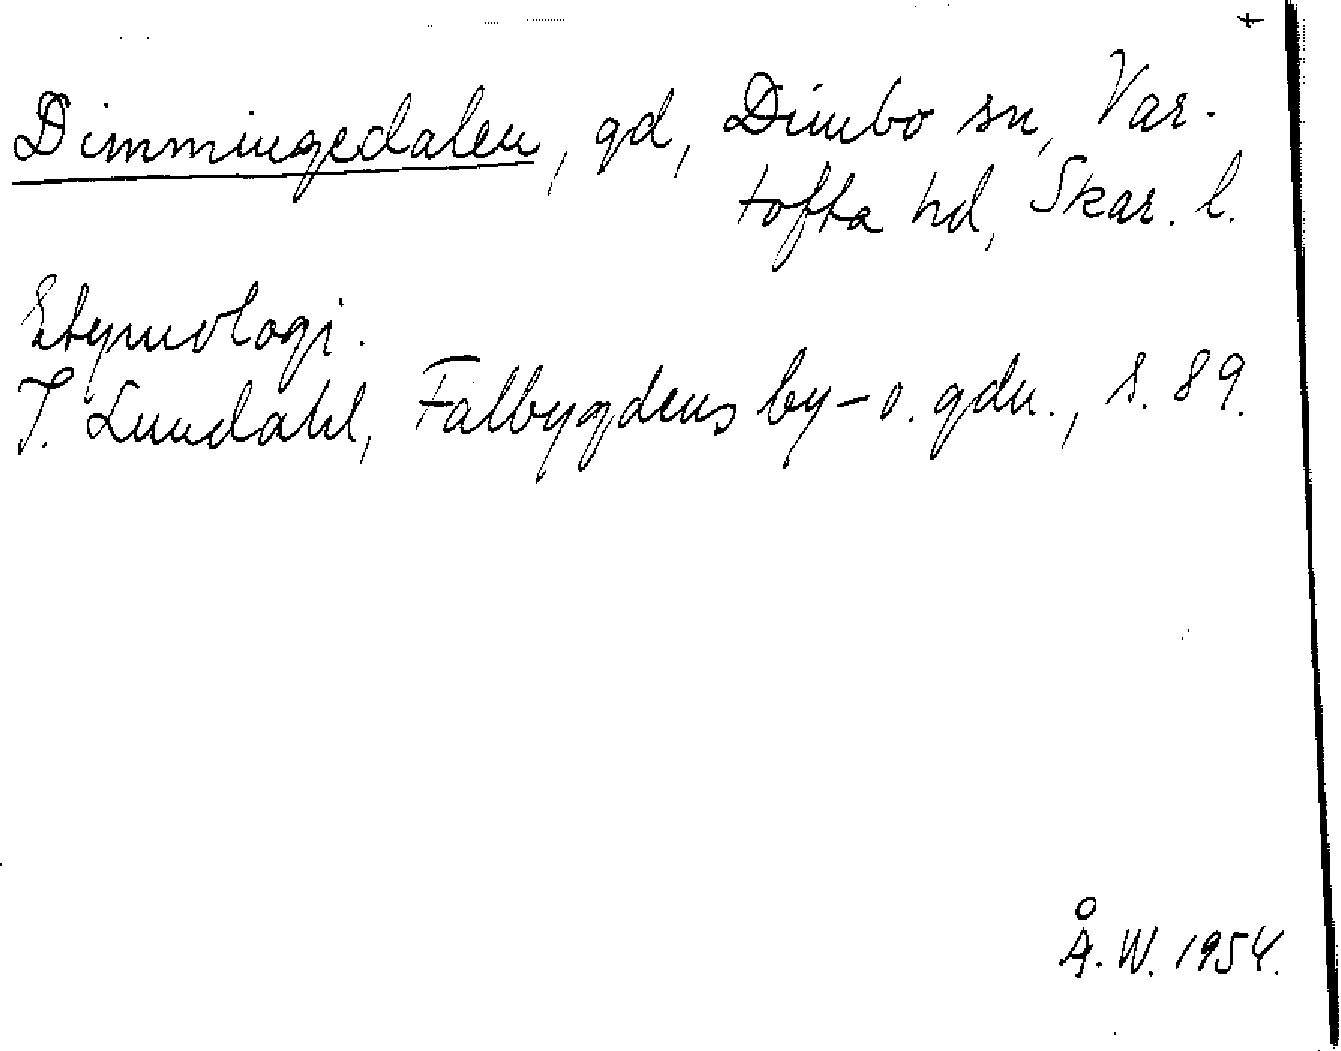 Dimmingedalen, gd, Dimbo sn, Var-
tofta hd, Skar. l.
Etymologi.
I. Lundahl, Falbygdens by- o. gdn., s. 89.
Å. W. 1954.